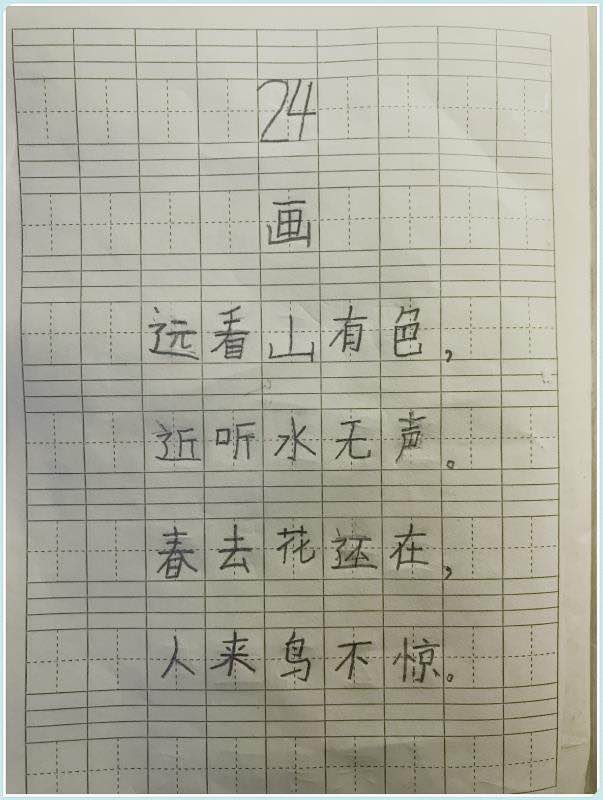 24
画
远看山有色，
近听水无声。
春去花还在，
人来鸟不惊。